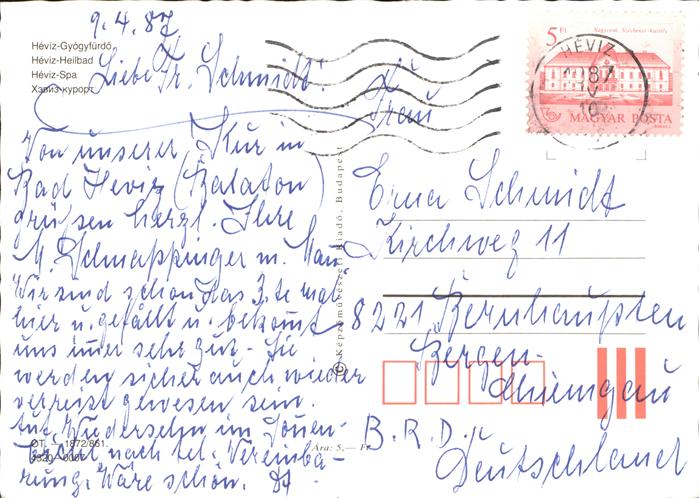 9.4.87
Hévíz-Gyógyfürdő
Hévíz-Heilbad
Hévíz-Spa
Хэвиз-курорт
Liebe Fr. Schmidt!
Von unserer Kur in
Bad Heviz (Balaton)
grüßen herzl. Ihre
M. Schnappinger m. Mann
Wir sind schon das 3.te mal
hier u. gefällt u. bekommt
uns immer sehr gut. Sie
werden sicher auch wieder
verreist gewesen sein.
Auf Wiedersehn im
nach tel. Vereinba-
rung. Wäre schön.
OT. — 1872/861.
Ára: 5,— Ft
© Képzőművészeti Kiadó, Budapest
5 Ft
Nagycenk, Széchenyi-kastély
MAGYAR POSTA
HÉVIZ
87
Frau
Erna Schmidt
Kirchweg 11
8221 Bernhaupten
Bergen-
Chiemgau
B.R.D.
Deutschland